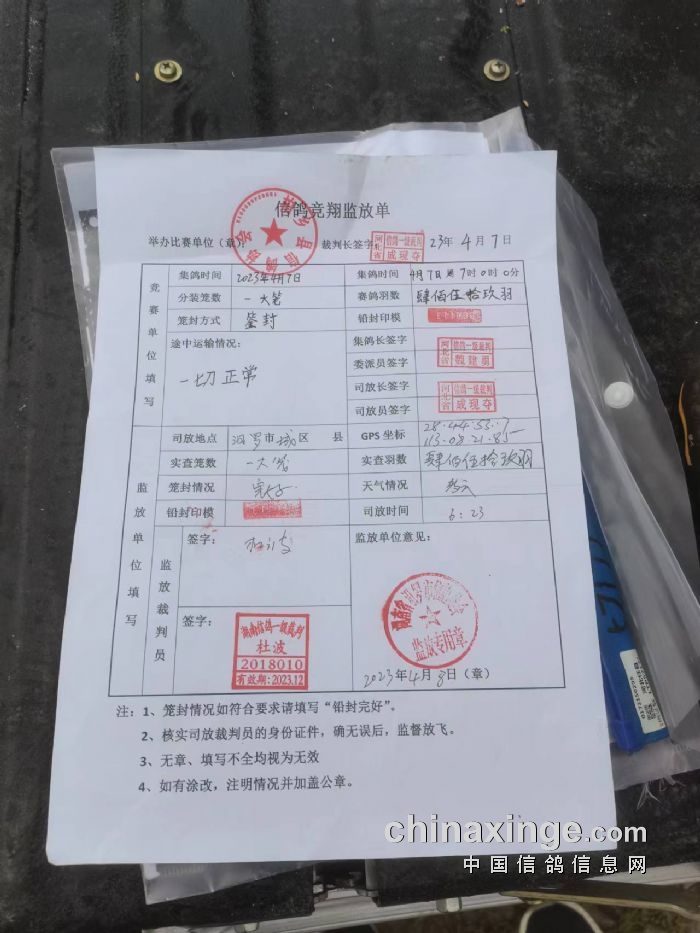 信鸽竞翔监放单
举办比赛单位（章）： 裁判长签字 23年4月7日
河北省 信鸽一级裁判
竞赛单位填写
集鸽时间 2023年4月7日 集鸽时间 4月7日 7时0时0分
分装笼数 一大笼 赛鸽羽数 肆佰伍拾玖羽
笼封方式 签封 铅封印模
途中运输情况： 集鸽长签字
一切正常 委派员签字
河北省 信鸽一级裁判 魏建勇
司放长签字
司放员签字
河北省 信鸽一级裁判
监放单位填写
司放地点 汨罗市城区 县 GPS 坐标 28.44.53.7
113.08.21.85
实查笼数 一大笼 实查羽数 肆佰伍拾玖羽
笼封情况 完好 天气情况 多云
铅封印模 司放时间 6:23
监放裁判员
签字： 杜波 监放单位意见：
签字：
湖南信鸽一级裁判
杜波
2018010
有效期:2023.12
监放专用章
2023年4月8日（章）
注：1、笼封情况如符合要求请填写“铅封完好”。
2、核实司放裁判员的身份证件，确无误后，监督放飞。
3、无章、填写不全均视为无效
4、如有涂改，注明情况并加盖公章。
chinaxinge.com
中国信鸽信息网